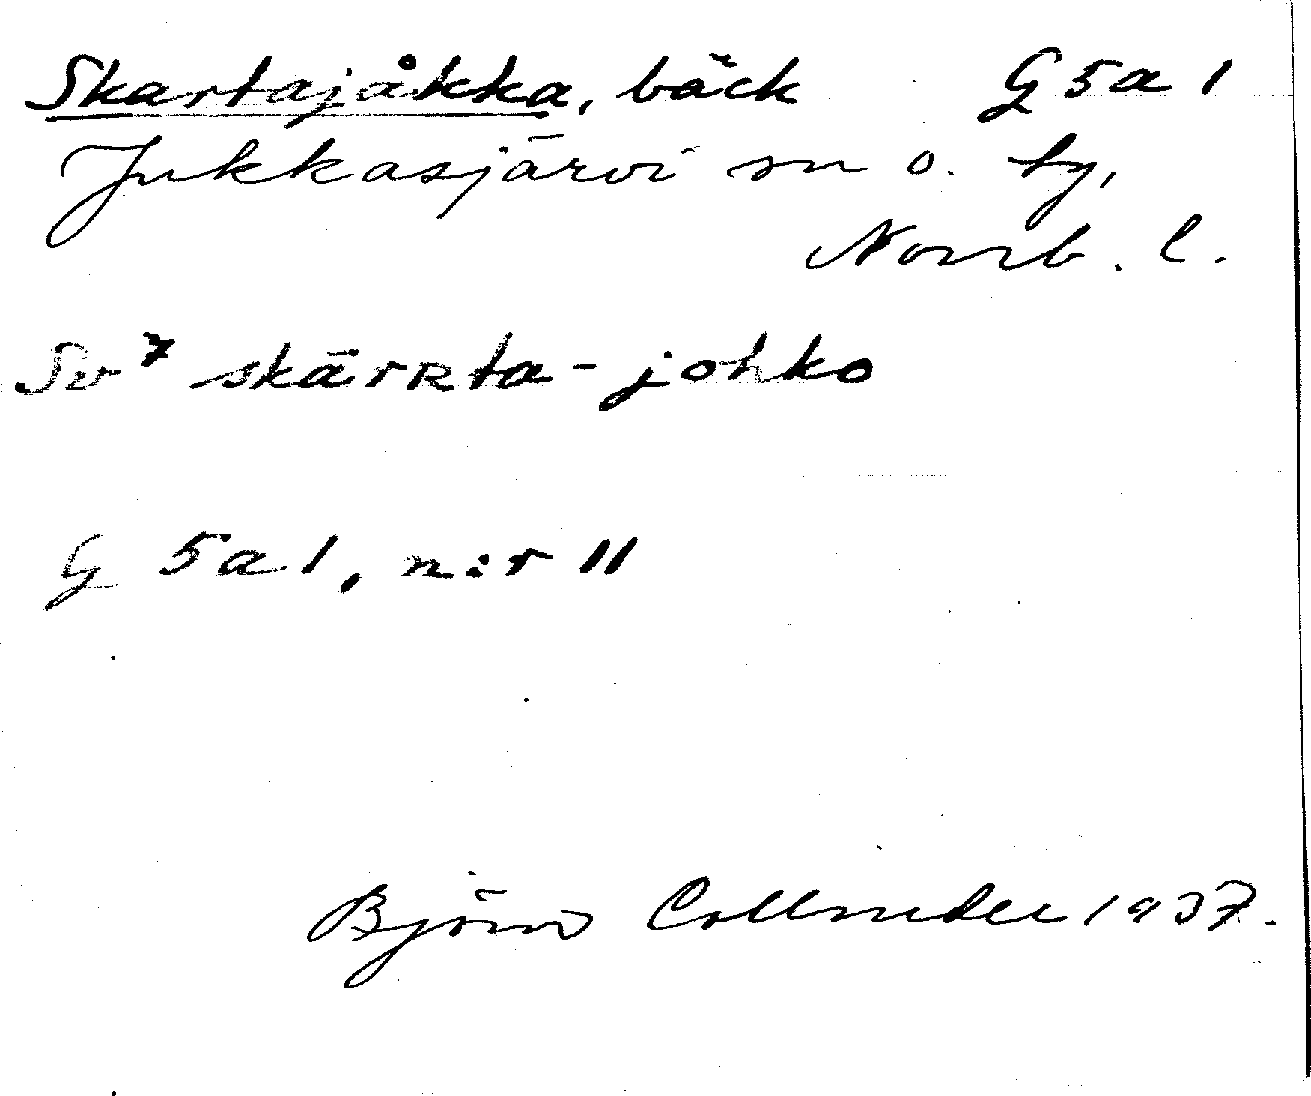 Skartajåkka, bäck G 5 a 1
Jukkasjärvi sn o. tg,
Norrb. l.
Sv⁷ skärʀta-johko
G 5 a 1, n:r 11
Björn Collinder 1937.